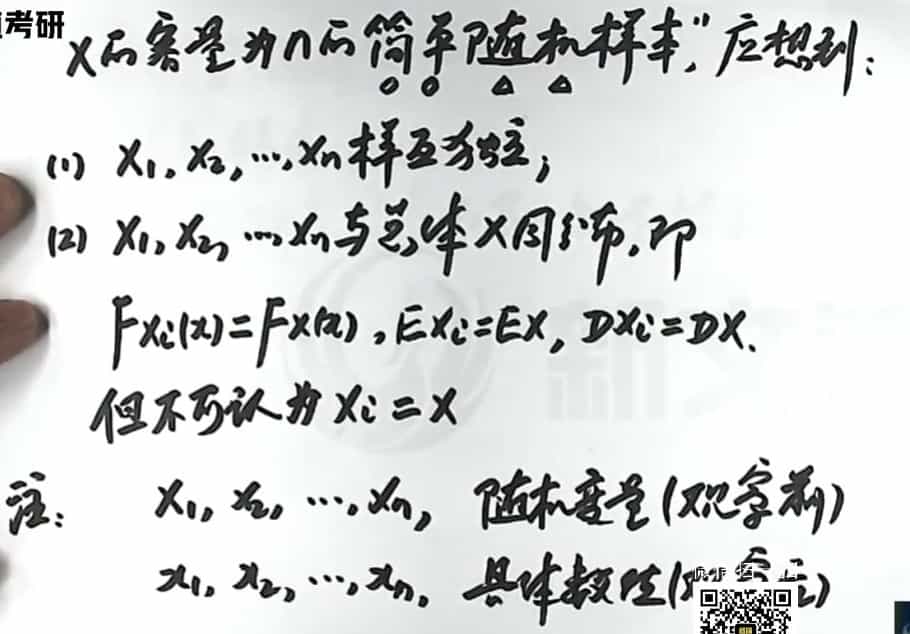 考研
X的容量为n的简单随机样本"，应想到：
(1) X₁, X₂, …, Xₙ 样互独立；
(2) X₁, X₂, …, Xₙ 与总体 X 同分布，即
F_{Xi}(x)=F_X(x), EXi=EX, DXi=DX.
但不可认为 Xi=X
注: X₁, X₂, …, Xₙ, 随机变量(观察前)
x₁, x₂, …, xₙ, 具体数值(